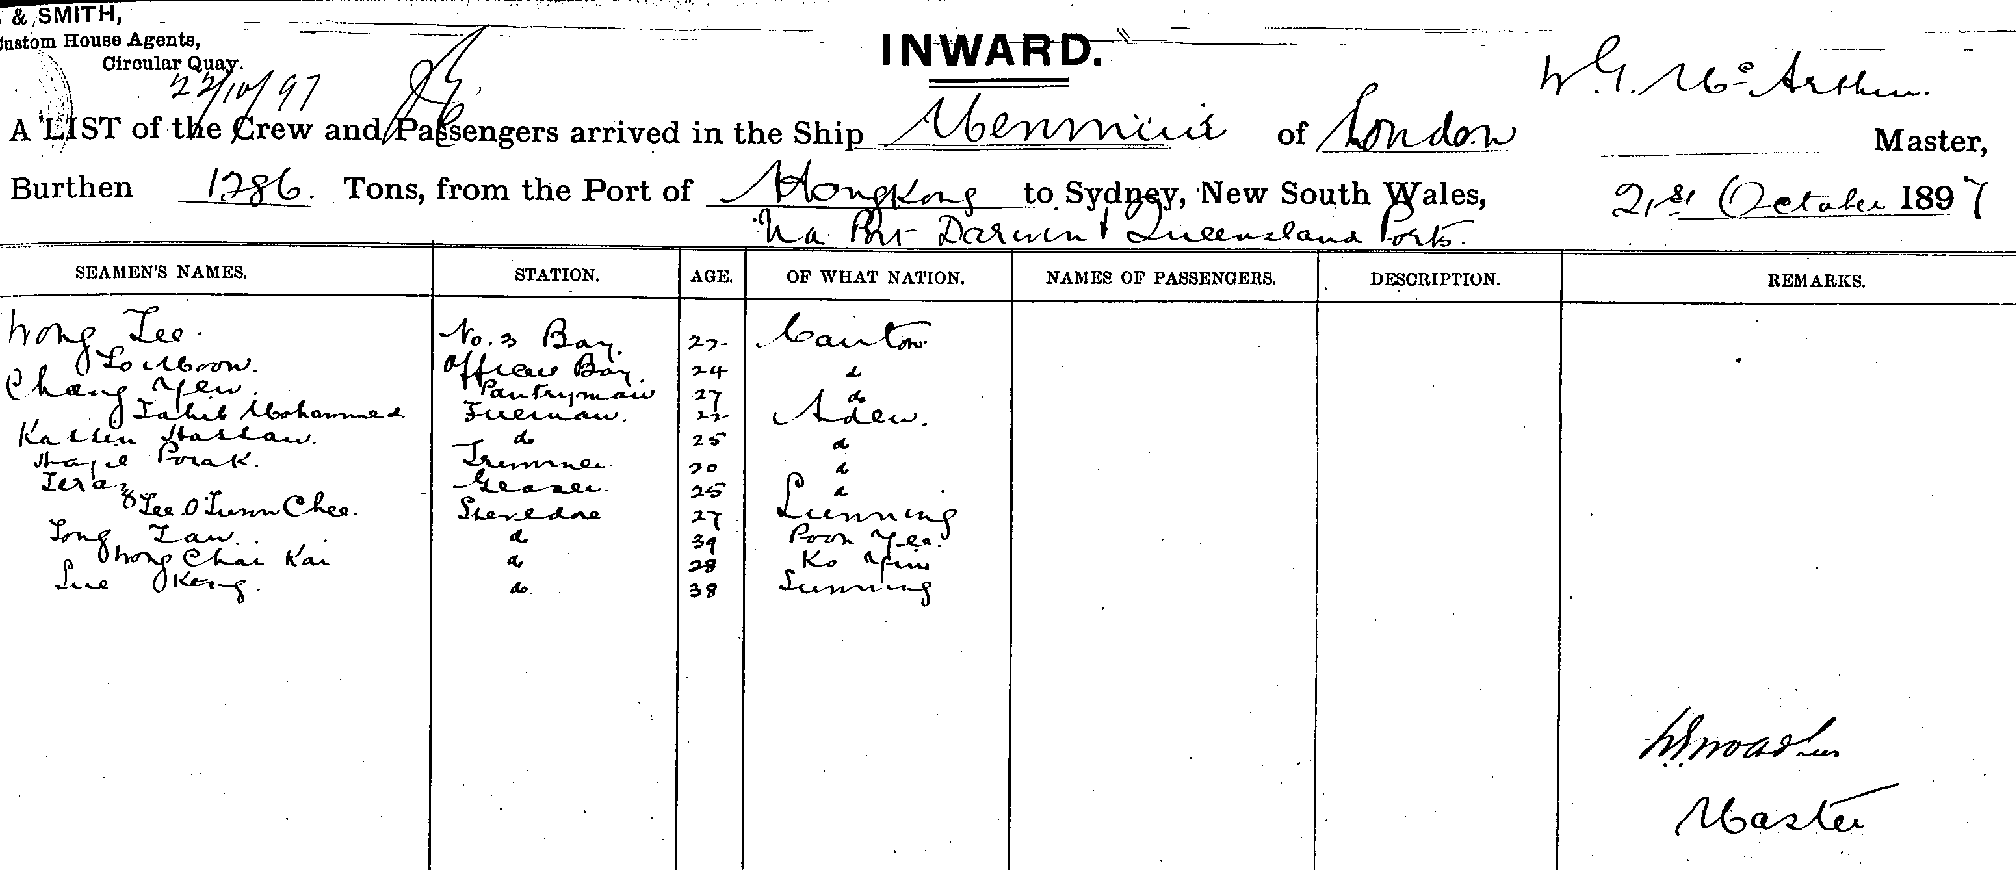 & SMITH,
Custom House Agents,
Circular Quay.
22/10/97
INWARD.
W. G. McArthur.
A LIST of the Crew and Passengers arrived in the Ship Menmuir of London Master,
Burthen 1286. Tons, from the Port of Hongkong to Sydney, New South Wales, 21st October 1897
Via Port Darwin & Queensland Ports.
SEAMEN'S NAMES. STATION. AGE. OF WHAT NATION. NAMES OF PASSENGERS. DESCRIPTION. REMARKS.
Wong Lee. No. 3 Boy. 22 Canton
Officers Boy. 24 do
Chang Yew. Pantryman 27 do
Tahib Mohammed Fireman. 22 Aden.
Kassim Hassan. do 25 do
Porak. Trimmer 20 do
Feraz Greaser 25 do
Lee O Tunn Chee. Stevedore 27 Sunning
Tong Tan. do 39 Poon Yee.
Wong Chai Kai do 28 Ko Yiu
Sue Kong. do 38 Sunning
Master